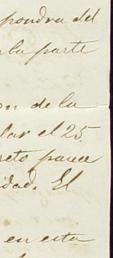 pondra del
a la parte
on de la
lar el 25.
reto parece
idad. El
en esta